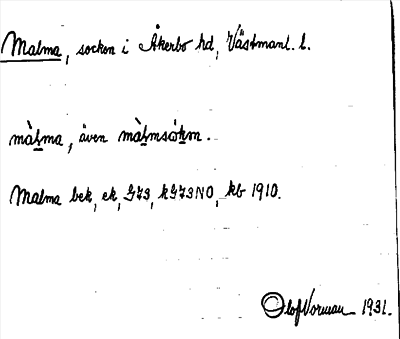 Malma, socken i Åkerbo hd, Västmanl. l.
màḻma, även màḻmsòkm.
Malma bek, ek, G73, kG73NO, kb 1910.
Olof Norman 1931.